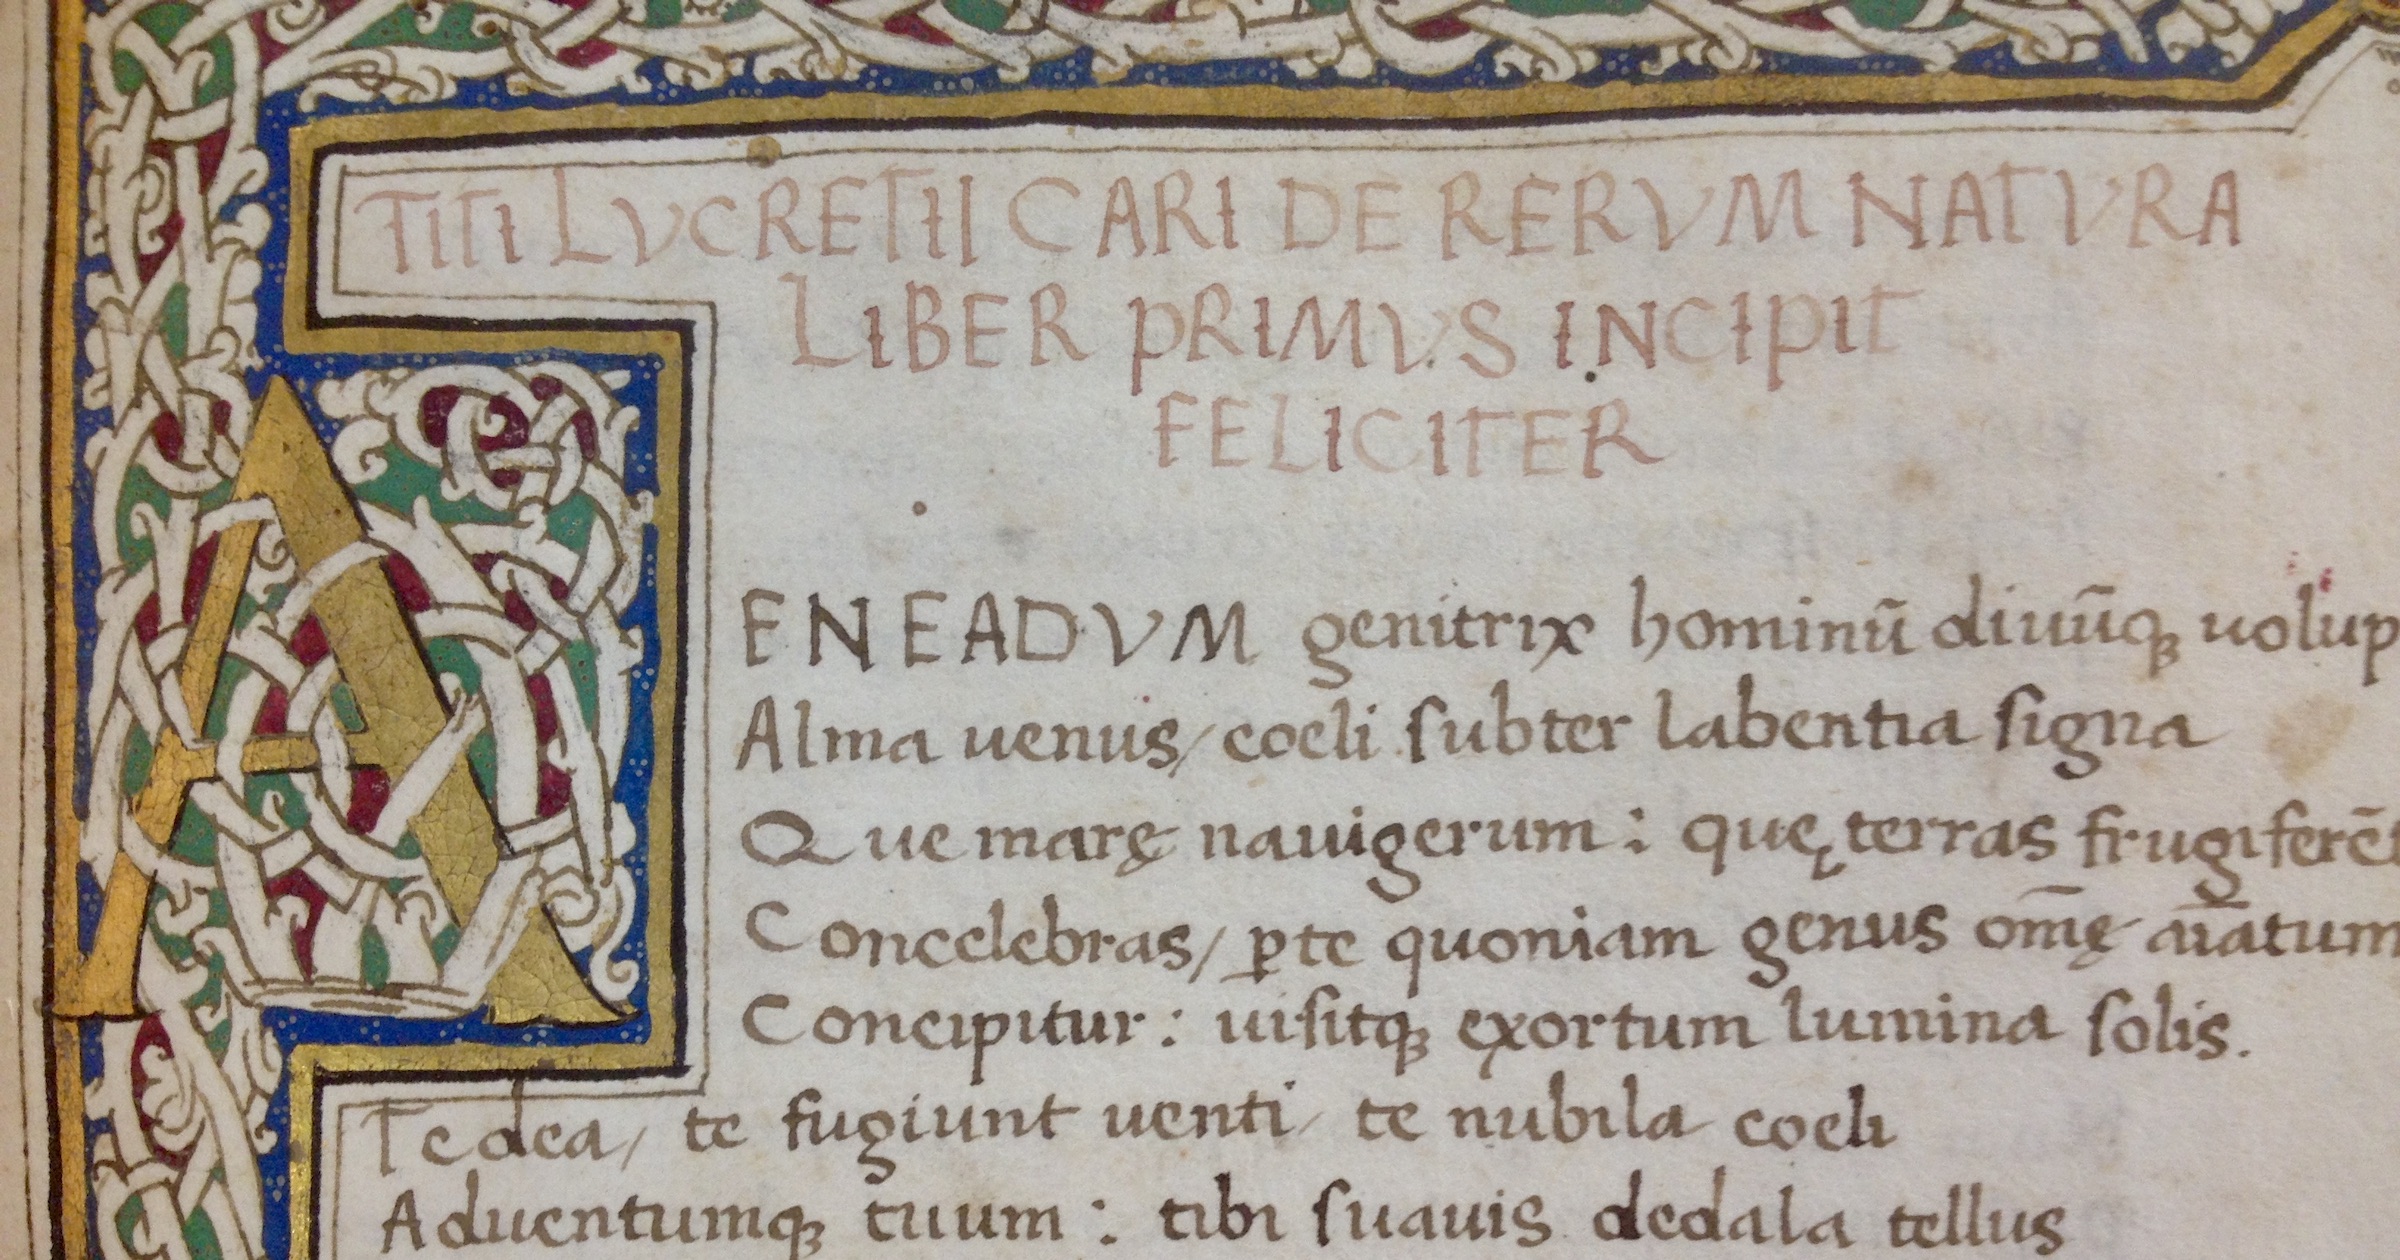 TITI LVCRETII CARI DE RERVM NATVRA
LIBER PRIMVS INCIPIT
FELICITER
AENEADVM genitrix hominū diuūqꝫ uolup
Alma uenus/ coeli subter labentia signa
Que marę nauigerum: quę terras frugiferēt
Concelebras/ ꝑte quoniam genus om̄ę aīatum
Concipitur: uisitqꝫ exortum lumina solis.
Te dea/ te fugiunt uenti/ te nubila coeli
Aduentumqꝫ tuum: tibi suauis dedala tellus